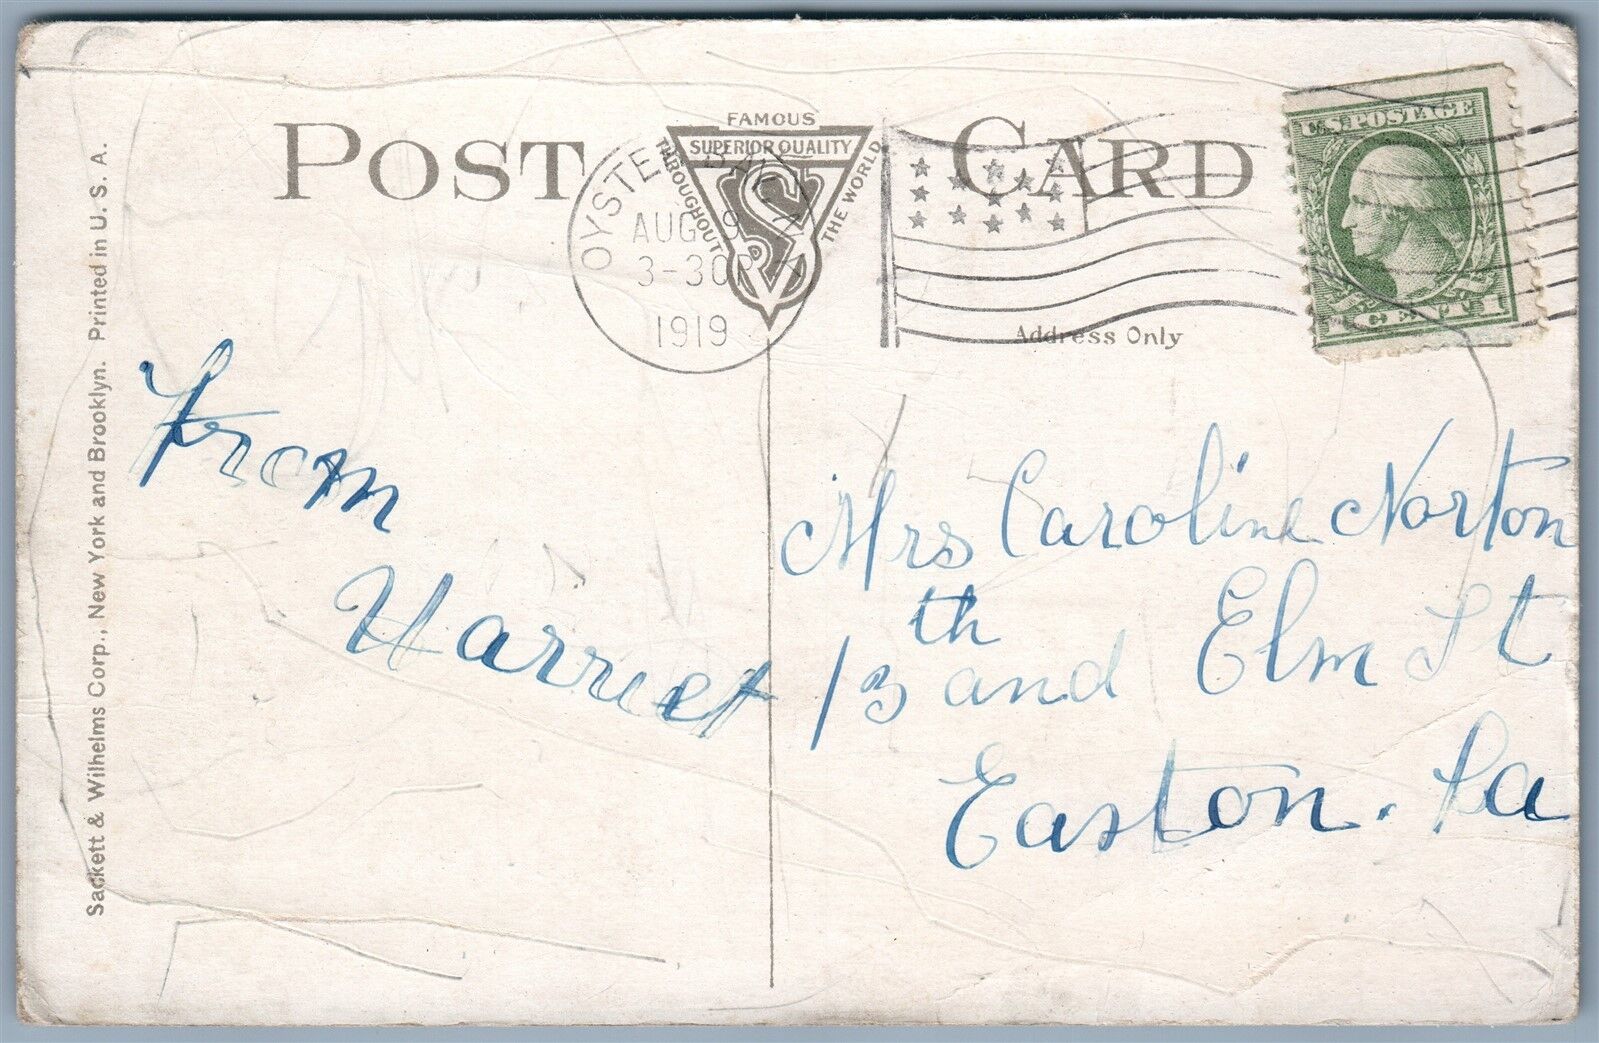 POST CARD
FAMOUS
SUPERIOR QUALITY
THROUGHOUT
THE WORLD
S
OYSTER BAY, N.Y.
AUG 9
3-30P
1919
U.S.POSTAGE
1 CENT 1
Address Only
From
Harriet
Mrs Caroline Norton
13th and Elm St
Easton. Pa
Sackett & Wilhelms Corp., New York and Brooklyn. Printed in U. S. A.